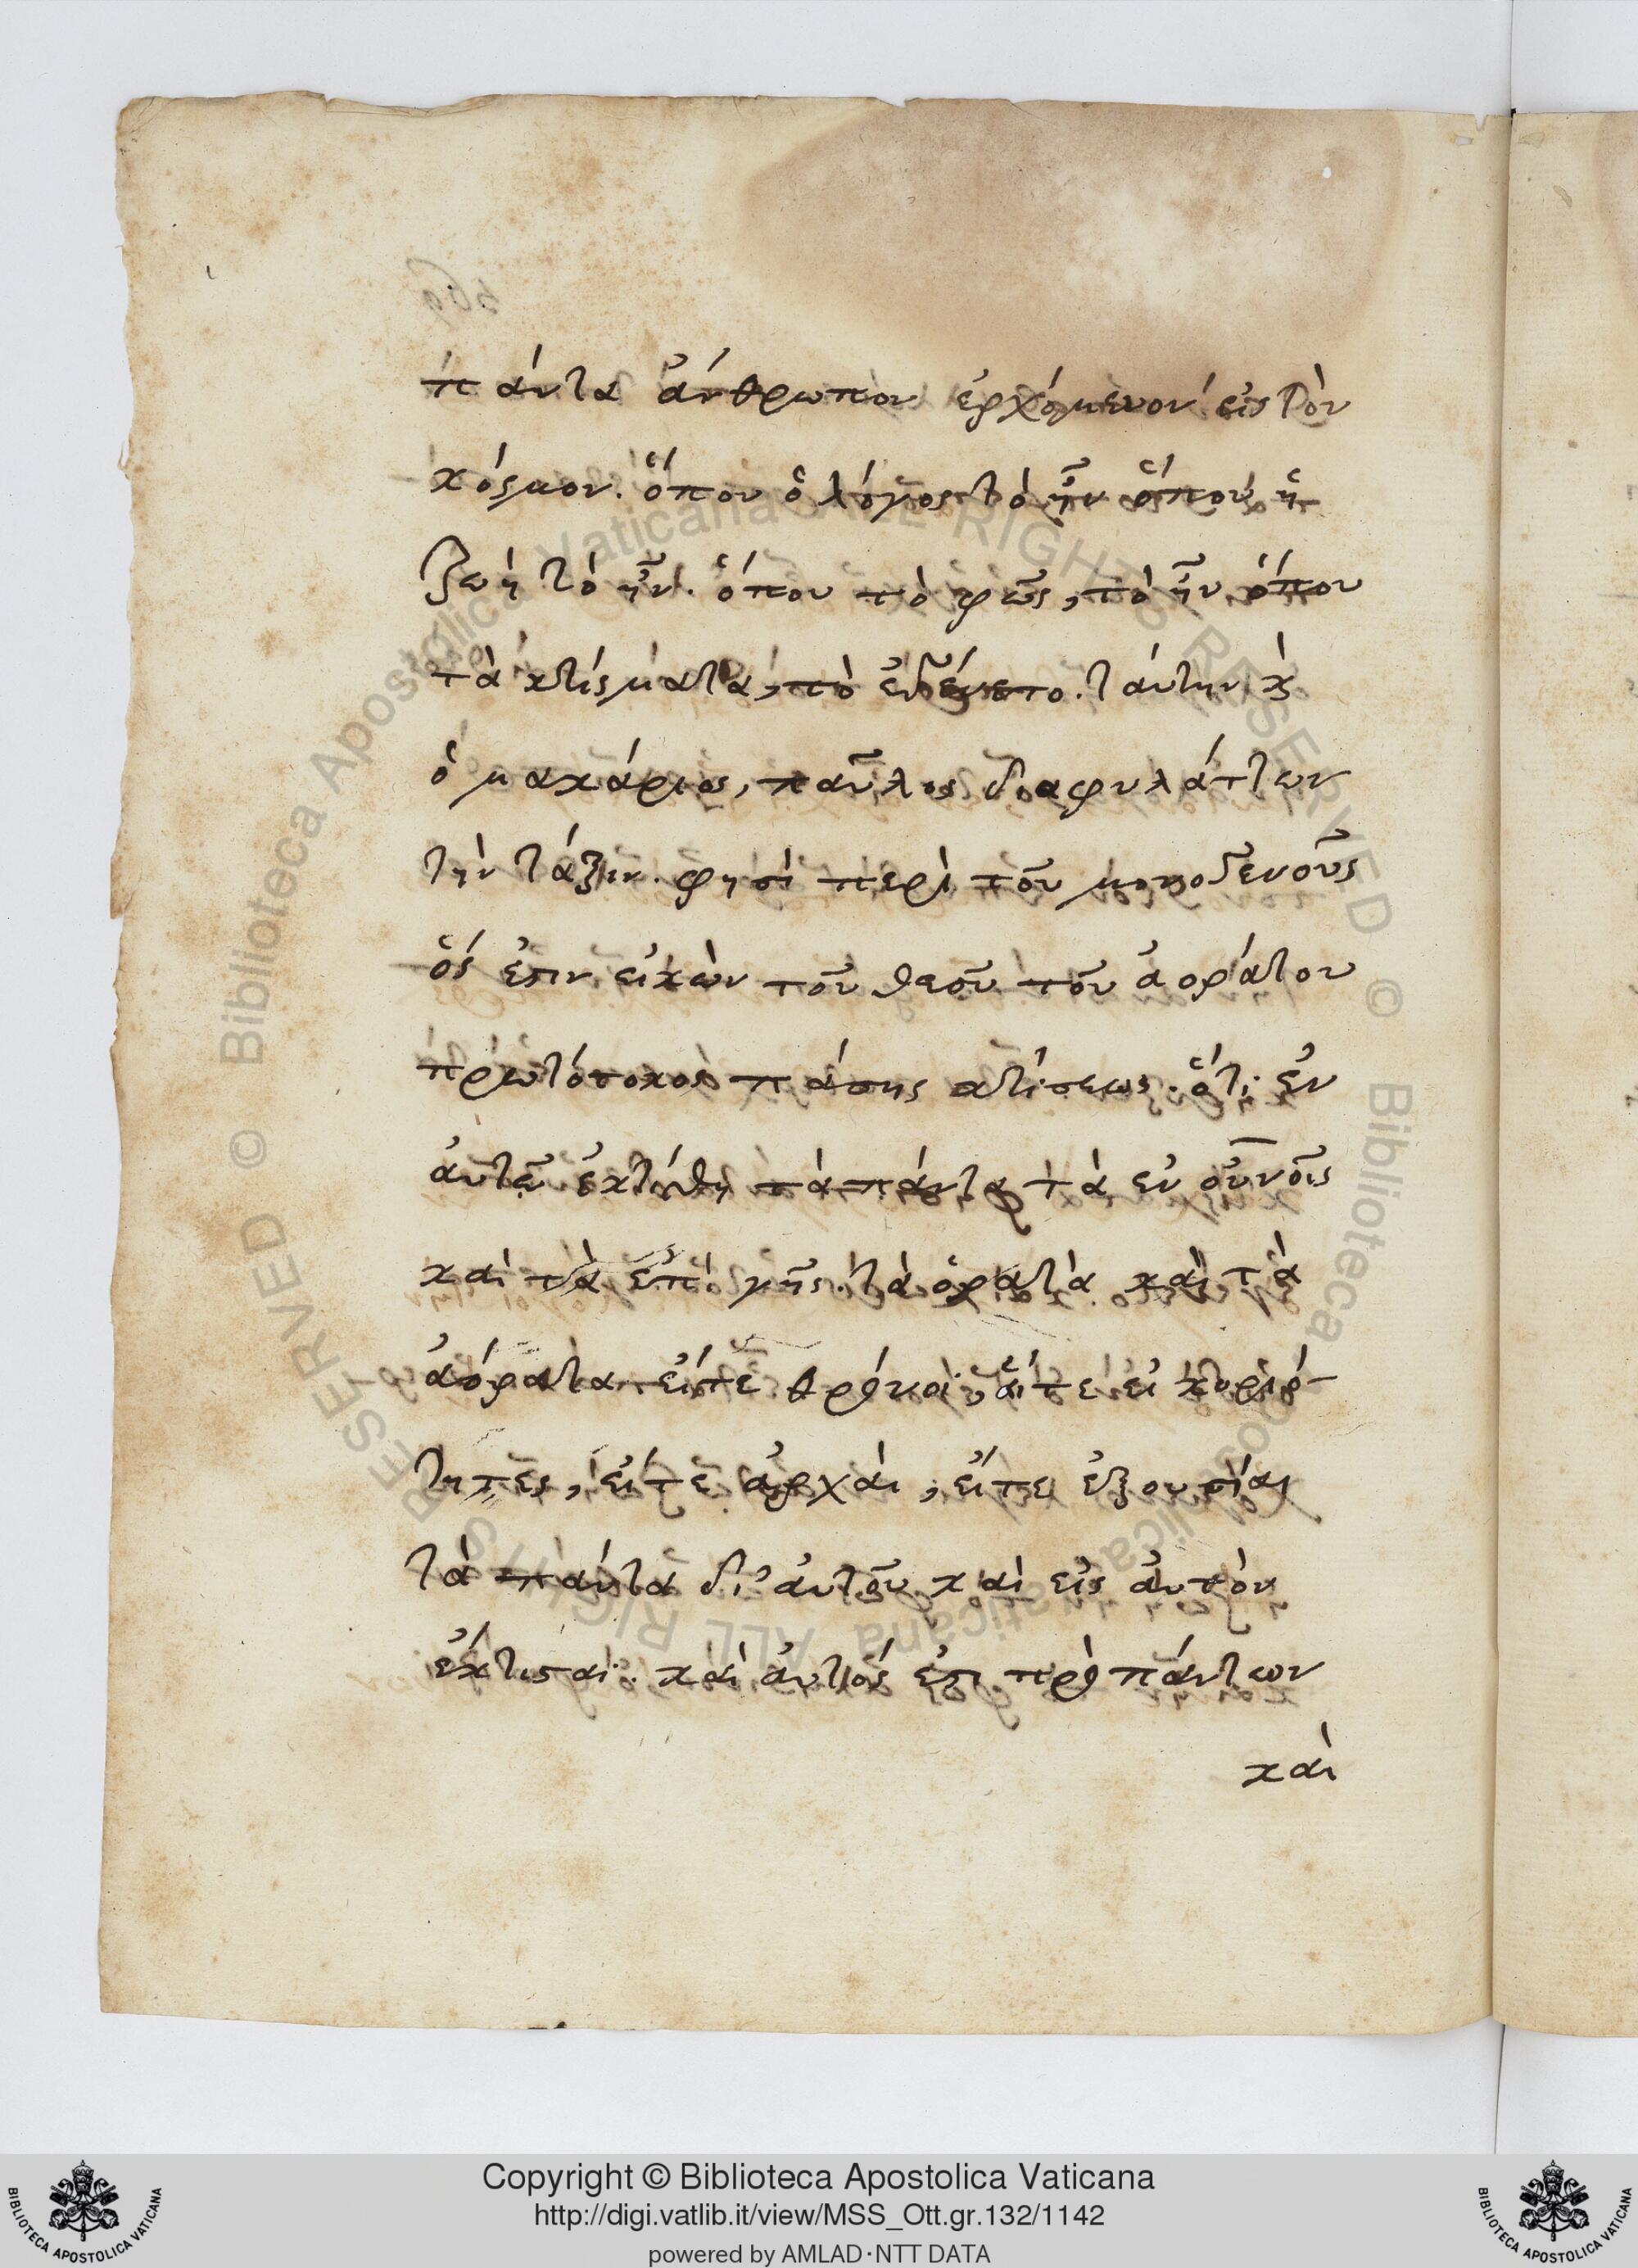 πάντα ἄνθρωπον ἐρχόμενον εἰς τὸν
κόσμον. ὅπου ὁ λόγος τὸ ἦν ὅπου ἡ
ζωὴ τὸ ἦν. ὅπου τὸ φῶς, τὸ ἦν ὅπου
τὰ κτίσματα, τὸ ἐγένετο. ταύτην κ̀
ὁ μακάριος, παῦλος διαφυλάττων
τὴν τάξιν. φησὶ περὶ τοῦ μονογενοῦς
ὅς ἐστιν εἰκὼν τοῦ θεοῦ τοῦ ἀοράτου
πρωτότοκος πάσης κτίσεως. ὅτι ἐν
ἀυτῶ ἐκτίσθη τὰ πάντα τὰ ἐν οὐνοῖς
καὶ τὰ ἐπὶ γῆς. τὰ ὁρατὰ καὶ τὰ
ἀόρατα. εἴτε θρόνοι, εἴτε εἰ κυριό-
τητες, εἴτε ἀρχάι, εἴτε ἐξουσίαι
τὰ πάντα δι' ἀυτοῦ καὶ εἰς ἀυτὸν
ἔκτισαι. καὶ ἀυτός ἐστι πρὸ πάντων
καὶ
Copyright © Biblioteca Apostolica Vaticana
http://digi.vatlib.it/view/MSS_Ott.gr.132/1142
powered by AMLAD·NTT DATA
BIBLIOTECA APOSTOLICA VATICANA
BIBLIOTECA APOSTOLICA VATICANA